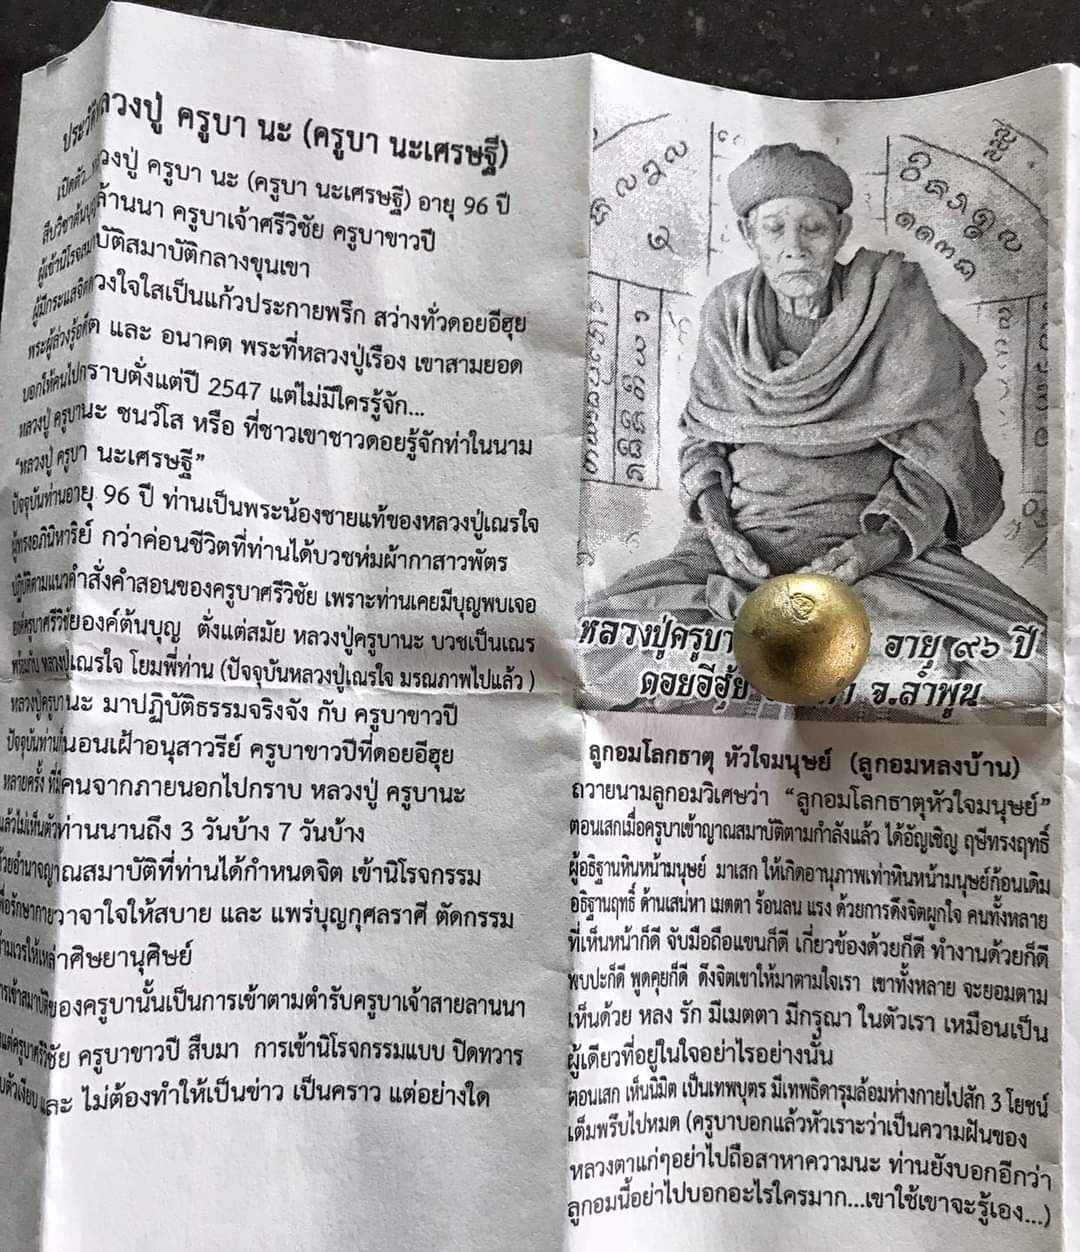 ประวัติหลวงปู่ ครูบา นะ (ครูบา นะเศรษฐี)
เปิดตัว...หลวงปู่ ครูบา นะ (ครูบา นะเศรษฐี) อายุ 96 ปี
สืบวิชาต้นบุญล้านนา ครูบาเจ้าศรีวิชัย ครูบาขาวปี
ผู้เข้านิโรจสมาบัติสมาบัติกลางขุนเขา
ผู้มีกระแสจิตดวงใจใสเป็นแก้วประกายพรึก สว่างทั่วดอยอีฮุย
พระผู้ล่วงรู้อดีต และ อนาคต พระที่หลวงปู่เรือง เขาสามยอด
บอกให้คนไปกราบตั่งแต่ปี 2547 แต่ไม่มีใครรู้จัก...
หลวงปู่ ครูบานะ ชนวํโส หรือ ที่ชาวเขาชาวดอยรู้จักท่าในนาม
“หลวงปู่ ครูบา นะเศรษฐี”
ปัจจุบันท่านอายุ 96 ปี ท่านเป็นพระน้องชายแท้ของหลวงปู่เณรใจ
ผู้ทรงอภินิหาริย์ กว่าค่อนชีวิตที่ท่านได้บวชห่มผ้ากาสาวพัตร
ปฏิบัติตามแนวคำสั่งคำสอนของครูบาศรีวิชัย เพราะท่านเคยมีบุญพบเจอ
องค์ครูบาศรีวิชัยองค์ต้นบุญ ตั่งแต่สมัย หลวงปู่ครูบานะ บวชเป็นเณร
พร้อมกับ หลวงปู่เณรใจ โยมพี่ท่าน (ปัจจุบันหลวงปู่เณรใจ มรณภาพไปแล้ว )
หลวงปู่ครูบานะ มาปฏิบัติธรรมจริงจัง กับ ครูบาขาวปี
ปัจจุบันท่านก็นอนเฝ้าอนุสาวรีย์ ครูบาขาวปีที่ดอยอีฮุย
หลายครั้ง ที่มีคนจากภายนอกไปกราบ หลวงปู่ ครูบานะ
แล้วไม่เห็นตัวท่านนานถึง 3 วันบ้าง 7 วันบ้าง
ด้วยอำนาจญาณสมาบัติที่ท่านได้กำหนดจิต เข้านิโรจกรรม
เพื่อรักษากายวาจาใจให้สบาย และ แพร่บุญกุศลราศี ตัดกรรม
ตามเวรให้เหล่าศิษยานุศิษย์
การเข้าสมาบัติของครูบานั้นเป็นการเข้าตามตำรับครูบาเจ้าสายลานนา
แต่ครูบาศรีวิชัย ครูบาขาวปี สืบมา การเข้านิโรจกรรมแบบ ปิดทวาร
ตัวเงียบ และ ไม่ต้องทำให้เป็นข่าว เป็นคราว แต่อย่างใด
หลวงปู่ครูบา อายุ ๙๖ ปี
ดอยอีฮุ้ย จ.ลำพูน
ลูกอมโลกธาตุ หัวใจมนุษย์ (ลูกอมหลงบ้าน)
ถวายนามลูกอมวิเศษว่า “ลูกอมโลกธาตุหัวใจมนุษย์”
ตอนเสกเมื่อครูบาเข้าญาณสมาบัติตามกำลังแล้ว ได้อัญเชิญ ฤษีทรงฤทธิ์
ผู้อธิฐานหินหน้ามนุษย์ มาเสก ให้เกิดอานุภาพเท่าหินหน้ามนุษย์ก้อนเดิม
อธิฐานฤทธิ์ ด้านเสน่หา เมตตา ร้อนลน แรง ด้วยการดึงจิตผูกใจ คนทั้งหลาย
ที่เห็นหน้าก็ดี จับมือถือแขนก็ดี เกี่ยวข้องด้วยก็ดี ทำงานด้วยก็ดี
พบปะก็ดี พูดคุยก็ดี ดึงจิตเขาให้มาตามใจเรา เขาทั้งหลาย จะยอมตาม
เห็นด้วย หลง รัก มีเมตตา มีกรุณา ในตัวเรา เหมือนเป็น
ผู้เดียวที่อยู่ในใจอย่าไรอย่างนั้น
ตอนเสก เห็นนิมิต เป็นเทพบุตร มีเทพธิดารุมล้อมห่างกายไปสัก 3 โยชน์
เต็มพรึบไปหมด (ครูบาบอกแล้วหัวเราะว่าเป็นความฝันของ
หลวงตาแก่ๆอย่าไปถือสาหาความนะ ท่านยังบอกอีกว่า
ลูกอมนี้อย่าไปบอกอะไรใครมาก...เขาใช้เขาจะรู้เอง...)